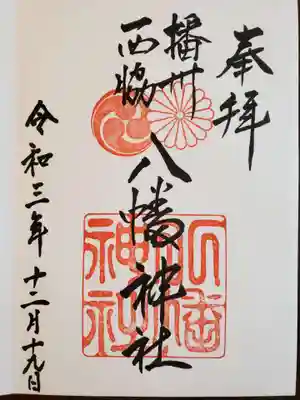 奉拝
播州
西脇
八幡神社
八幡
神社
令和三年十二月十九日